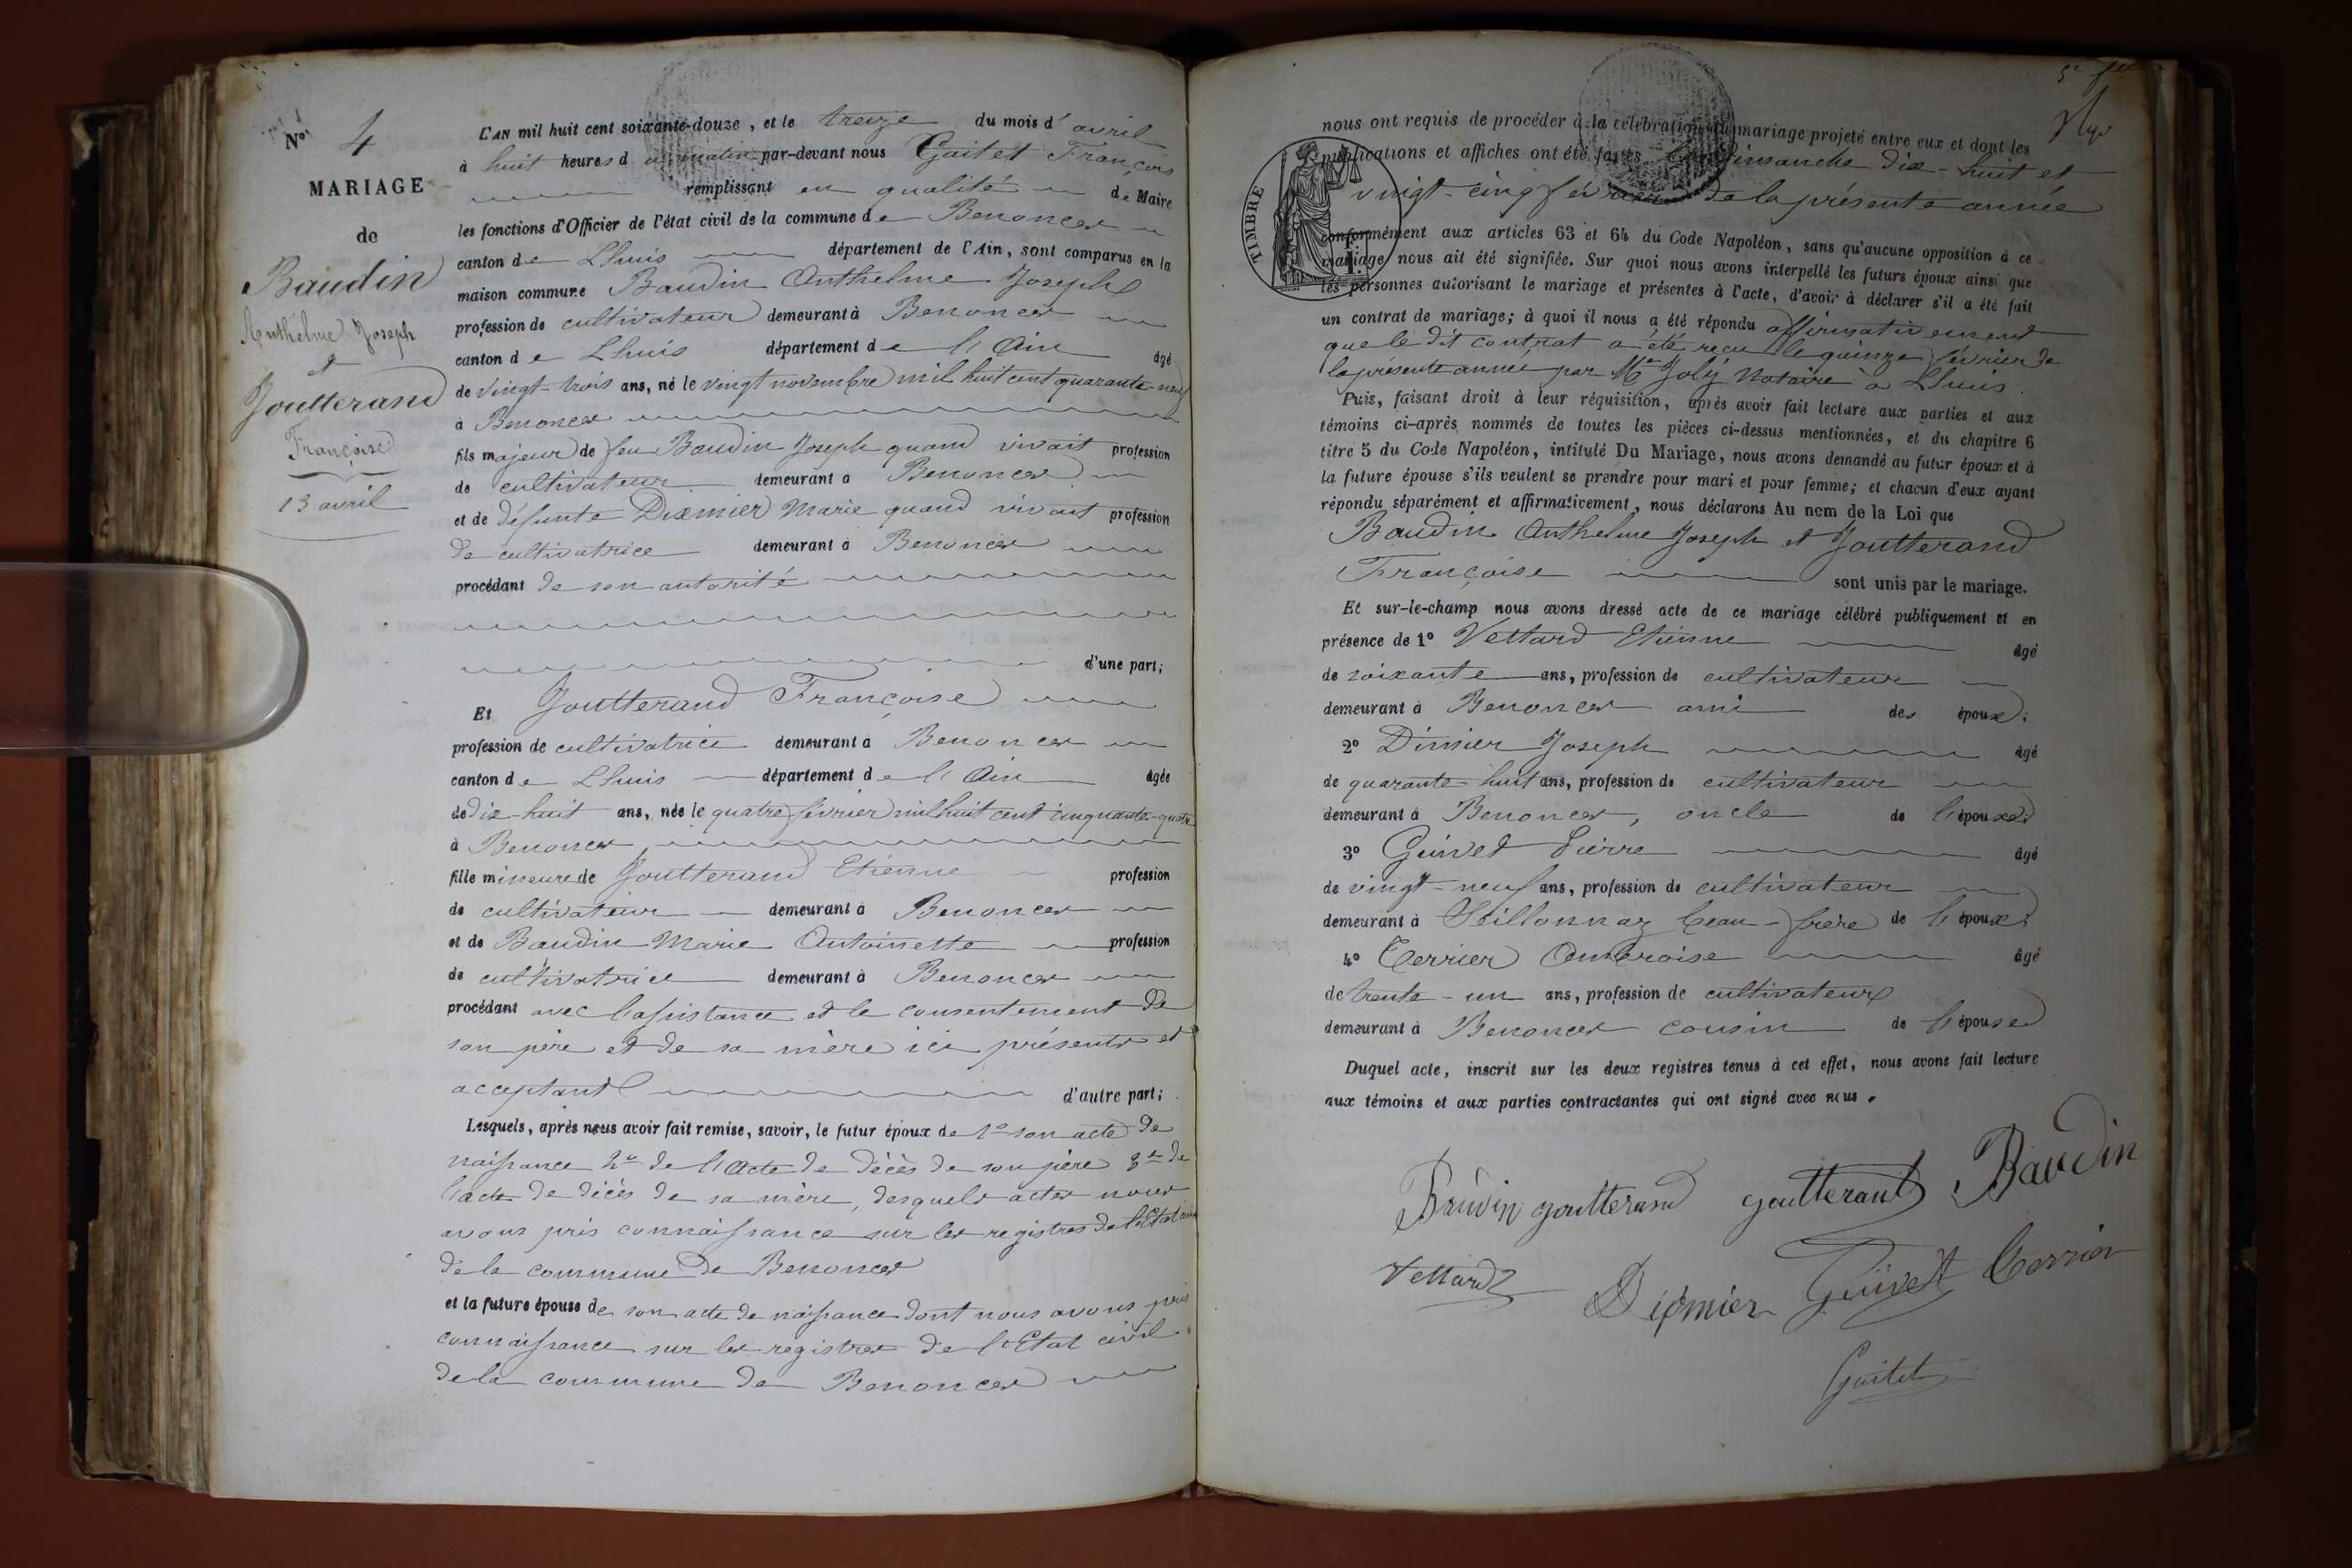 No 4
MARIAGE
de
Baudin
Anthelme Joseph
et
Joutterand
Françoise
13 avril
L'AN mil huit cent soixante-douze, et le treize du mois d'avril
à huit heures du matin par-devant nous Gaitet François
remplissant en qualité de Maire
les fonctions d'Officier de l'état civil de la commune de Benonces
canton de Lhuis département de l'Ain, sont comparus en la
maison commune Baudin Anthelme Joseph
profession de cultivateur demeurant à Benonces
canton de Lhuis département de l'Ain âgé
de vingt-trois ans, né le vingt novembre mil huit cent quarante-neuf
à Benonces
fils majeur de feu Baudin Joseph quand vivait profession
de cultivateur demeurant à Benonces
et de défunte Dixmier Marie quand vivait profession
de cultivatrice demeurant à Benonces
procédant de son autorité
d'une part;
Et Joutterand Françoise
profession de cultivatrice demeurant à Benonces
canton de Lhuis département de l'Ain âgée
de dix-huit ans, née le quatre février mil huit cent cinquante-quatre
à Benonces
fille mineure de Joutterand Etienne profession
de cultivateur demeurant à Benonces
et de Baudin Marie Antoinette profession
de cultivatrice demeurant à Benonces
procédant avec l'assistance et le consentement de
son père et de sa mère ici présents et
acceptant d'autre part;
Lesquels, après nous avoir fait remise, savoir, le futur époux de 1o son acte de
naissance 2o de l'acte de décès de son père 3o de
l'acte de décès de sa mère, desquels actes nous
avons pris connaissance sur les registres de l'Etat civil
de la commune de Benonces
et la future épouse de son acte de naissance dont nous avons pris
connaissance sur les registres de l'Etat civil
de la commune de Benonces
nous ont requis de procéder à la célébration du mariage projeté entre eux et dont les
publications et affiches ont été faites les dimanche dix-huit et
vingt-cinq février de la présente année
TIMBRE
conformément aux articles 63 et 64 du Code Napoléon, sans qu'aucune opposition à ce
mariage nous ait été signifiée. Sur quoi nous avons interpellé les futurs époux ainsi que
les personnes autorisant le mariage et présentes à l'acte, d'avoir à déclarer s'il a été fait
un contrat de mariage; à quoi il nous a été répondu affirmativement
que le dit contrat a été reçu le quinze février de
la présente année par Me Joly Notaire à Lhuis
Puis, faisant droit à leur réquisition, après avoir fait lecture aux parties et aux
témoins ci-après nommés de toutes les pièces ci-dessus mentionnées, et du chapitre 6
titre 5 du Code Napoléon, intitulé Du Mariage, nous avons demandé au futur époux et à
la future épouse s'ils veulent se prendre pour mari et pour femme; et chacun d'eux ayant
répondu séparément et affirmativement, nous déclarons Au nom de la Loi que
Baudin Anthelme Joseph et Joutterand
Françoise sont unis par le mariage.
Et sur-le-champ nous avons dressé acte de ce mariage célébré publiquement et en
présence de 1o Vettard Etienne âgé
de soixante ans, profession de cultivateur
demeurant à Benonces ami des époux;
2o Dimier Joseph âgé
de quarante-huit ans, profession de cultivateur
demeurant à Benonces, oncle de l'époux;
3o Guinet Pierre âgé
de vingt-neuf ans, profession de cultivateur
demeurant à Seillonnaz beau-frère de l'époux;
4o Terrier Ambroise âgé
de trente-un ans, profession de cultivateur
demeurant à Benonces cousin de l'épouse
Duquel acte, inscrit sur les deux registres tenus à cet effet, nous avons fait lecture
aux témoins et aux parties contractantes qui ont signé avec nous.
Baudin joutterand goutterant Baudin
Vettard Dixmier Guinet Terrier
Gaitet